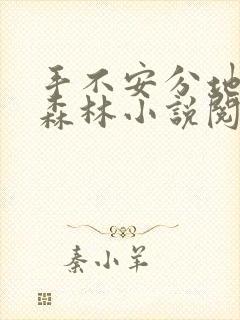 手不安分地
森林小說閱
秦小羊